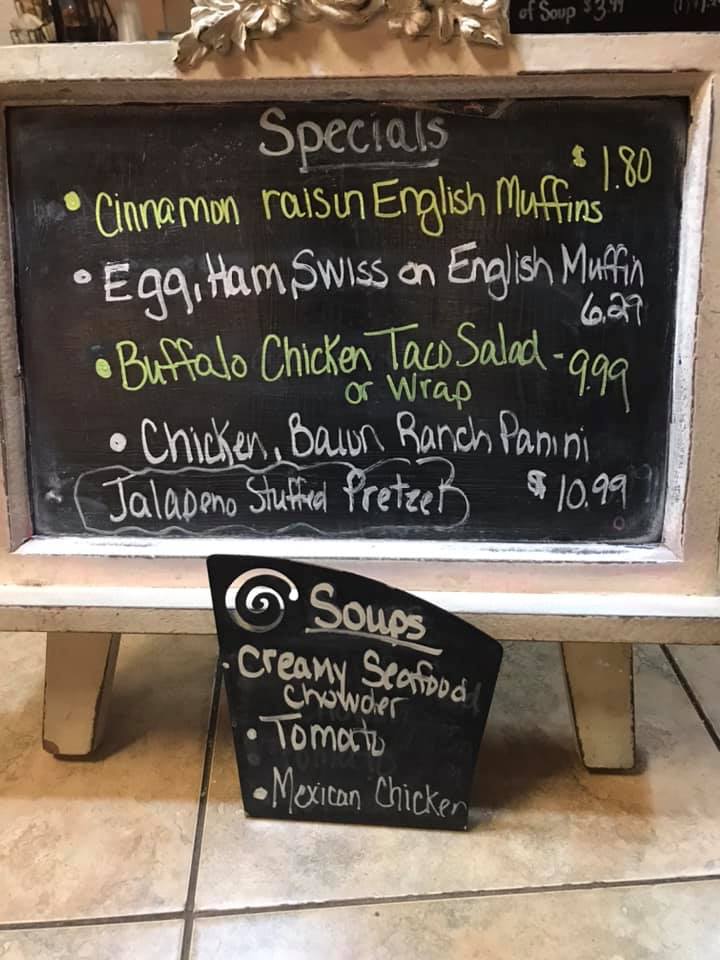 of Soup $3.99
Specials
• Cinnamon raisin English Muffins $1.80
• Egg, Ham, Swiss on English Muffin
6.29
• Buffalo Chicken Taco Salad - 9.99
or Wrap
• Chicken, Bacon Ranch Panini
Jalapeno Stuffed Pretzel $10.99
Soups
• Creamy Seafood
Chowder
• Tomato
• Mexican Chicken